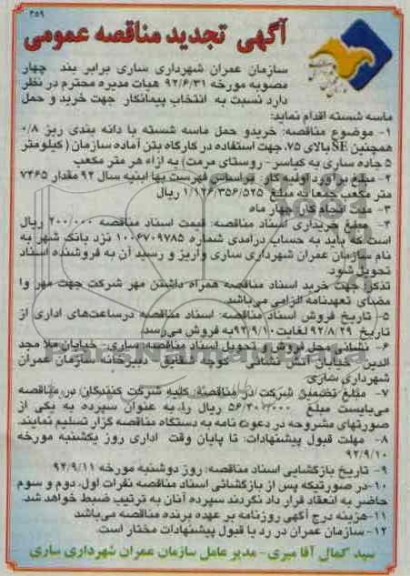 ۳۵۹
آگهی تجدید مناقصه عمومی
سازمان عمران شهرداری ساری برابر بند چهار
مصوبه مورخه ۹۲/۶/۳۱ هیات مدیره محترم در نظر
دارد نسبت به انتخاب پیمانکار جهت خرید و حمل
ماسه شسته اقدام نماید:
۱- موضوع مناقصه: خریدو حمل ماسه شسته با دانه بندی ریز ۰/۸
همچنین SE بالای ۷۵، جهت استفاده در کارگاه بتن آماده سازمان (کیلومتر
۵ جاده ساری به کیاسر- روستای مرمت) به ازاء هر متر مکعب
۲- مبلغ برآورد اولیه کار: براساس فهرست بها ابنیه سال ۹۲ مقدار ۷۲۶۵
متر مکعب جمعا به مبلغ ۱/۱۲۶/۳۵۶/۵۲۵ ریال
۳- مدت انجام کار: چهار ماه
۴- مبلغ خریداری اسناد مناقصه: قیمت اسناد مناقصه ۲۰۰/۰۰۰ ریال
است که باید به حساب درآمدی شماره ۱۰۰۶۷۰۹۷۸۵ نزد بانک شهر به
نام سازمان عمران شهرداری ساری واریز و رسید آن به فروشنده اسناد
تحویل شود.
تذکر: جهت خرید اسناد مناقصه همراه داشتن مهر شرکت جهت مهر وا
مضای تعهدنامه الزامی می‌باشد
۵- تاریخ فروش اسناد مناقصه: اسناد مناقصه درساعت‌های اداری از
تاریخ ۹۲/۸/۲۹ لغایت ۹۲/۹/۱۰ به فروش می‌رسد.
۶- نشانی محل فروش و تحویل اسناد مناقصه: ساری- خیابان ملا مجد
الدین- خیابان آتش نشانی- کوچه شقایق- دبیرخانه سازمان عمران
شهرداری ساری
۷- مبلغ تضمین شرکت در مناقصه: کلیه شرکت کنندگان در مناقصه
می‌بایست مبلغ ۵۶/۳۰۰/۰۰۰ ریال را، به عنوان سپرده به یکی از
صورتهای مشروحه در دعوت نامه به دستگاه مناقصه گزار تسلیم نمایند.
۸- مهلت قبول پیشنهادات: تا پایان وقت اداری روز یکشنبه مورخه
۹۲/۹/۱۰
۹- تاریخ بازگشایی اسناد مناقصه: روز دوشنبه مورخه ۹۲/۹/۱۱
۱۰-در صورتیکه پس از بازگشائی اسناد مناقصه نفرات اول، دوم و سوم
حاضر به انعقاد قرار داد نگردند سپرده آنان به ترتیب ضبط خواهد شد.
۱۱-هزینه درج آگهی روزنامه بر عهده برنده مناقصه می‌باشد
۱۲-سازمان عمران در رد یا قبول پیشنهادات مختار است.
سید کمال آقا میری- مدیر عامل سازمان عمران شهرداری ساری